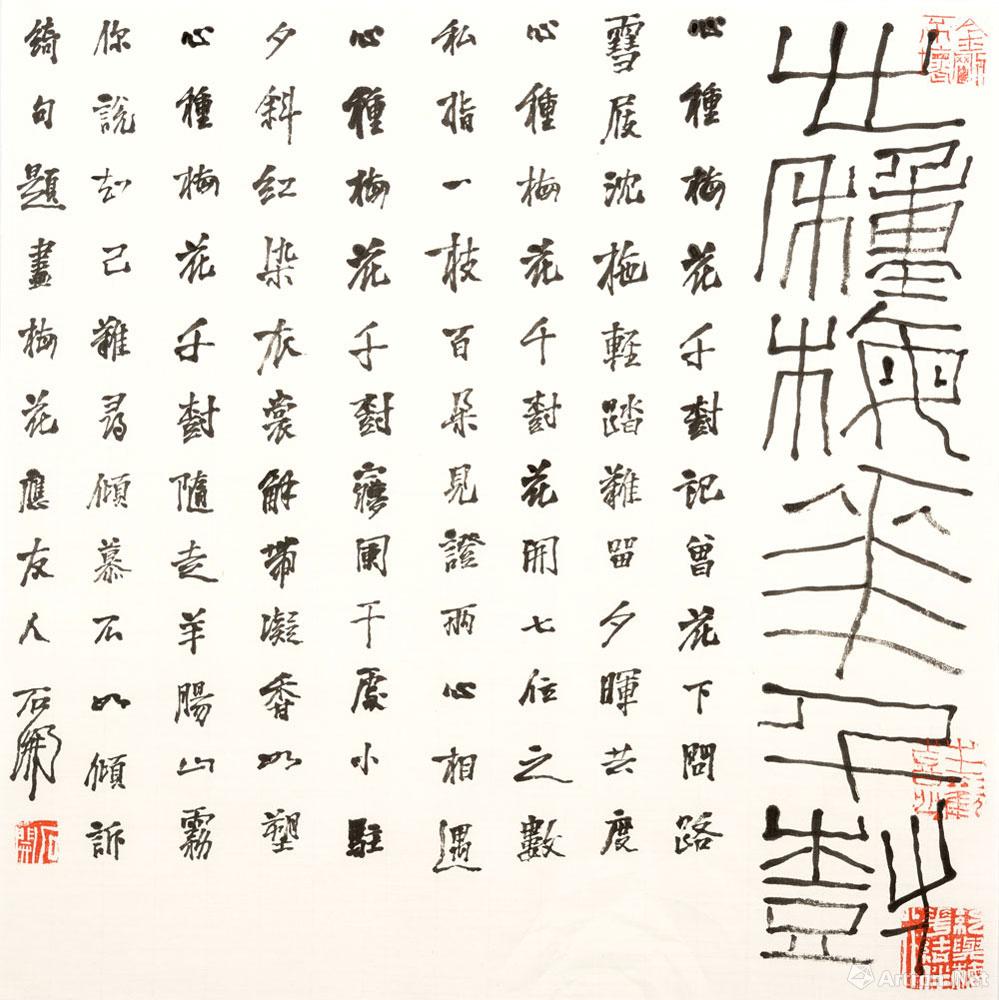 心種梅花千尌
心種梅花千尌記曾花下問路
雪屐沈拖輕踏難留夕暉共度
心種梅花千尌花開七位之數
私指一枝百朵見證兩心相遇
心種梅花千尌寥闌干處小駐
夕斜紅染衣裳解帶凝香如塑
心種梅花千尌隨走羊腸山霧
你說知己難尋傾慕不如傾訴
綺句題畫梅花應友人 石開
石開
Artron.Net